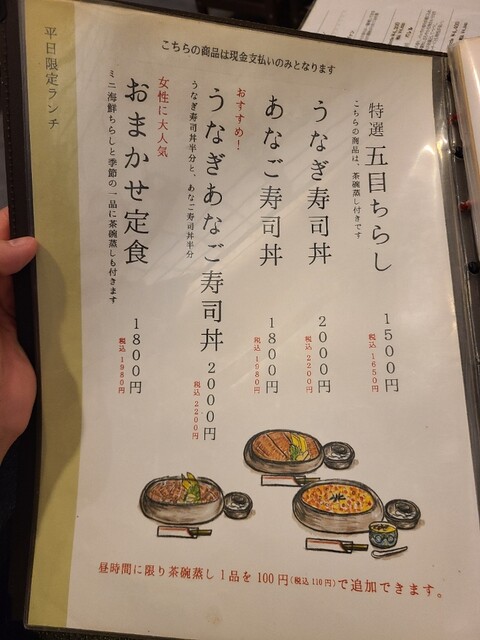 こちらの商品は現金支払いのみとなります
特選 五目ちらし
こちらの商品は、茶碗蒸し付きです
1500円
税込 1650円
うなぎ寿司丼
2000円
税込 2200円
あなご寿司丼
1800円
税込 1980円
おすすめ！
うなぎあなご寿司丼
うなぎ寿司丼半分と、あなご寿司丼半分
2000円
税込 2200円
女性に大人気
おまかせ定食
ミニ海鮮ちらしと季節の一品に茶碗蒸しも付きます
1800円
税込 1980円
平日限定ランチ
昼時間に限り茶碗蒸し1品を100円(税込110円)で追加できます。